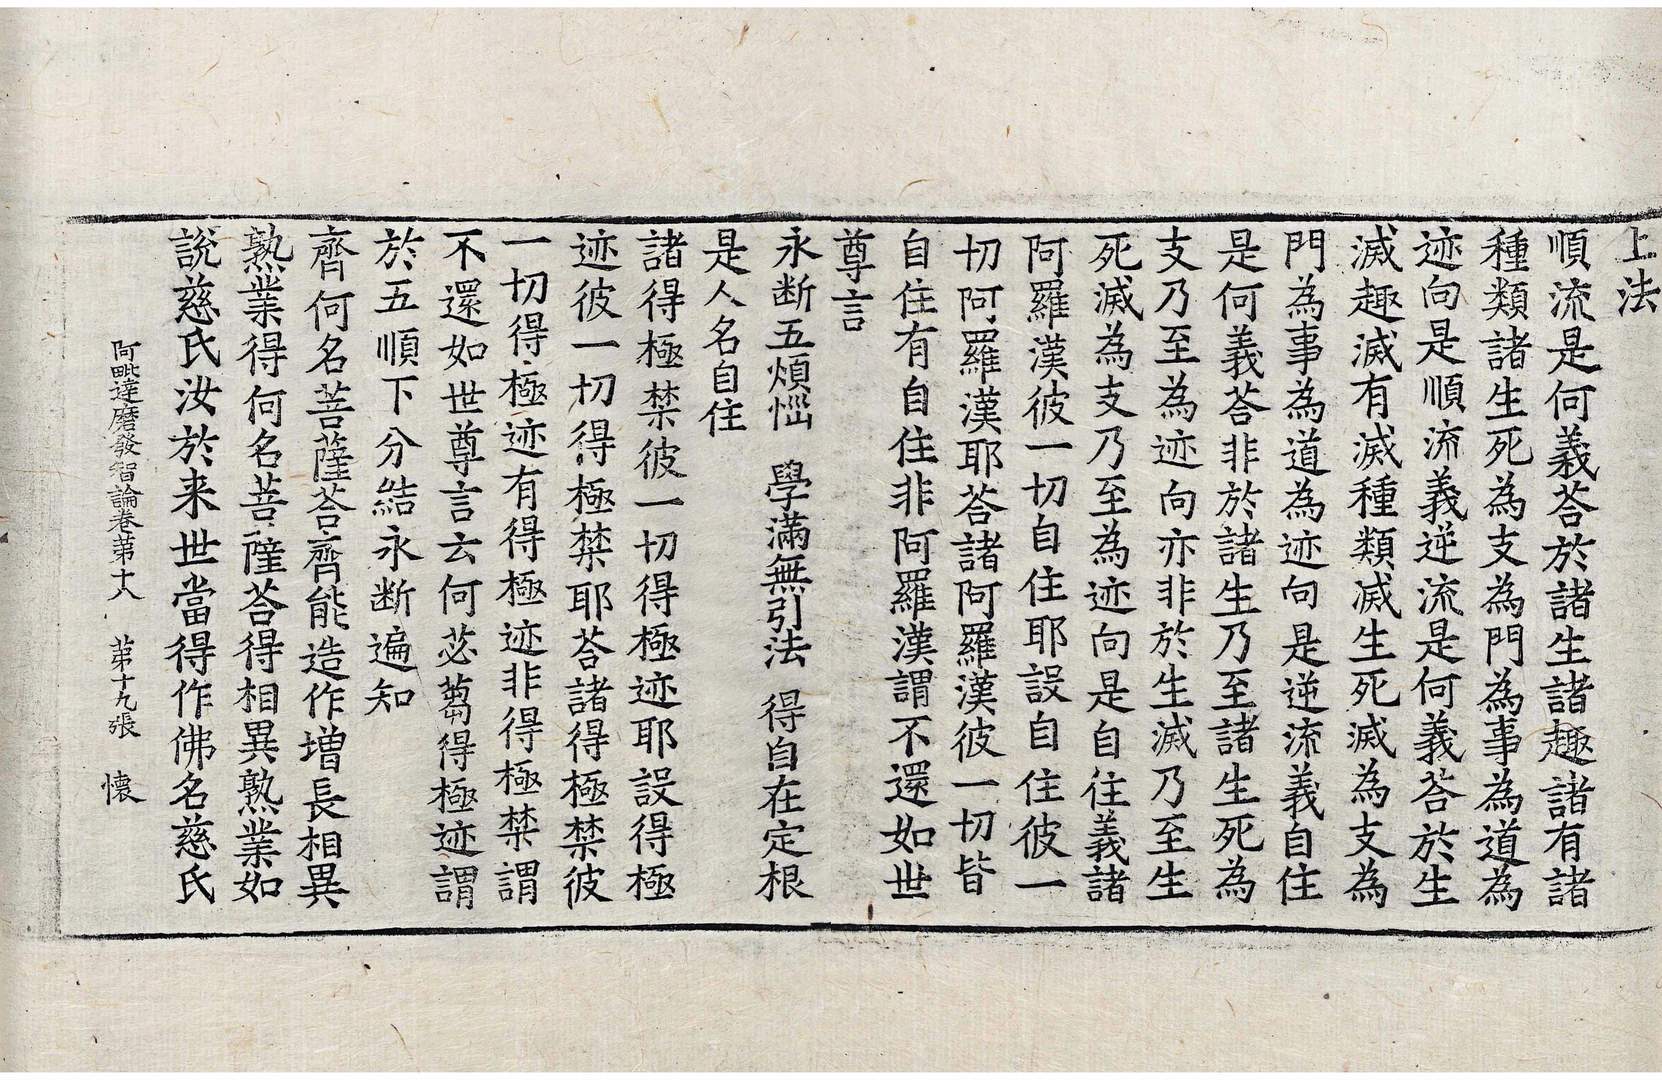 上法
順流是何義荅於諸生諸趣諸有諸
種類諸生死為支為門為事為道為
迹向是順流義逆流是何義荅於生
滅趣滅有滅種類滅生死滅為支為
門為事為道為迹向是逆流義自住
是何義荅非於諸生乃至諸生死為
支乃至為迹向亦非於生滅乃至生
死滅為支乃至為迹向是自住義諸
阿羅漢彼一切自住耶設自住彼一
切阿羅漢耶荅諸阿羅漢彼一切皆
自住有自住非阿羅漢謂不還如世
尊言
永断五煩惱　學滿無引法　得自在定根
是人名自住
諸得極禁彼一切得極迹耶設得極
迹彼一切得極禁耶荅諸得極禁彼
一切得極迹有得極迹非得極禁謂
不還如世尊言云何苾蒭得極迹謂
於五順下分結永断遍知
齊何名菩薩荅齊能造作增長相異
熟業得何名菩薩荅得相異熟業如
說慈氏汝於来世當得作佛名慈氏
阿毗達磨發智論卷苐十八　苐十九張　懷